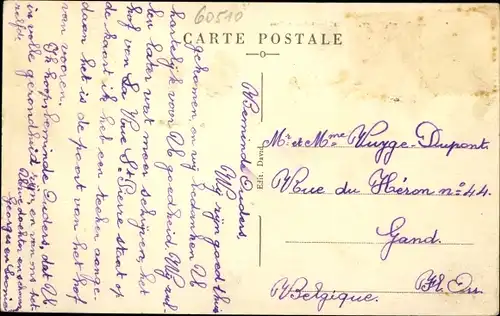 60510
CARTE POSTALE
Beminde Ouders,
Wij zijn goed thuis
gekomen, en wij bedanken U
hartelijk voor U goedheid. Wij zul-
len later wat meer schrijven, het
hof van La Vaue St Pierre staat op
de kaart ik het een teeken aange-
daan het is de poort van het hof
van vooren.
Ik hoop beminde Ouders, dat U
in volle gezondheid zijn en van ons het-
zelfde
Uwe dochter en schoonz.
Georges en
Edit. David
Mr. et Mme Vuyge-Dupont.
Rue du Héron no 44.
Gand.
Fl. Or.
Belgique.